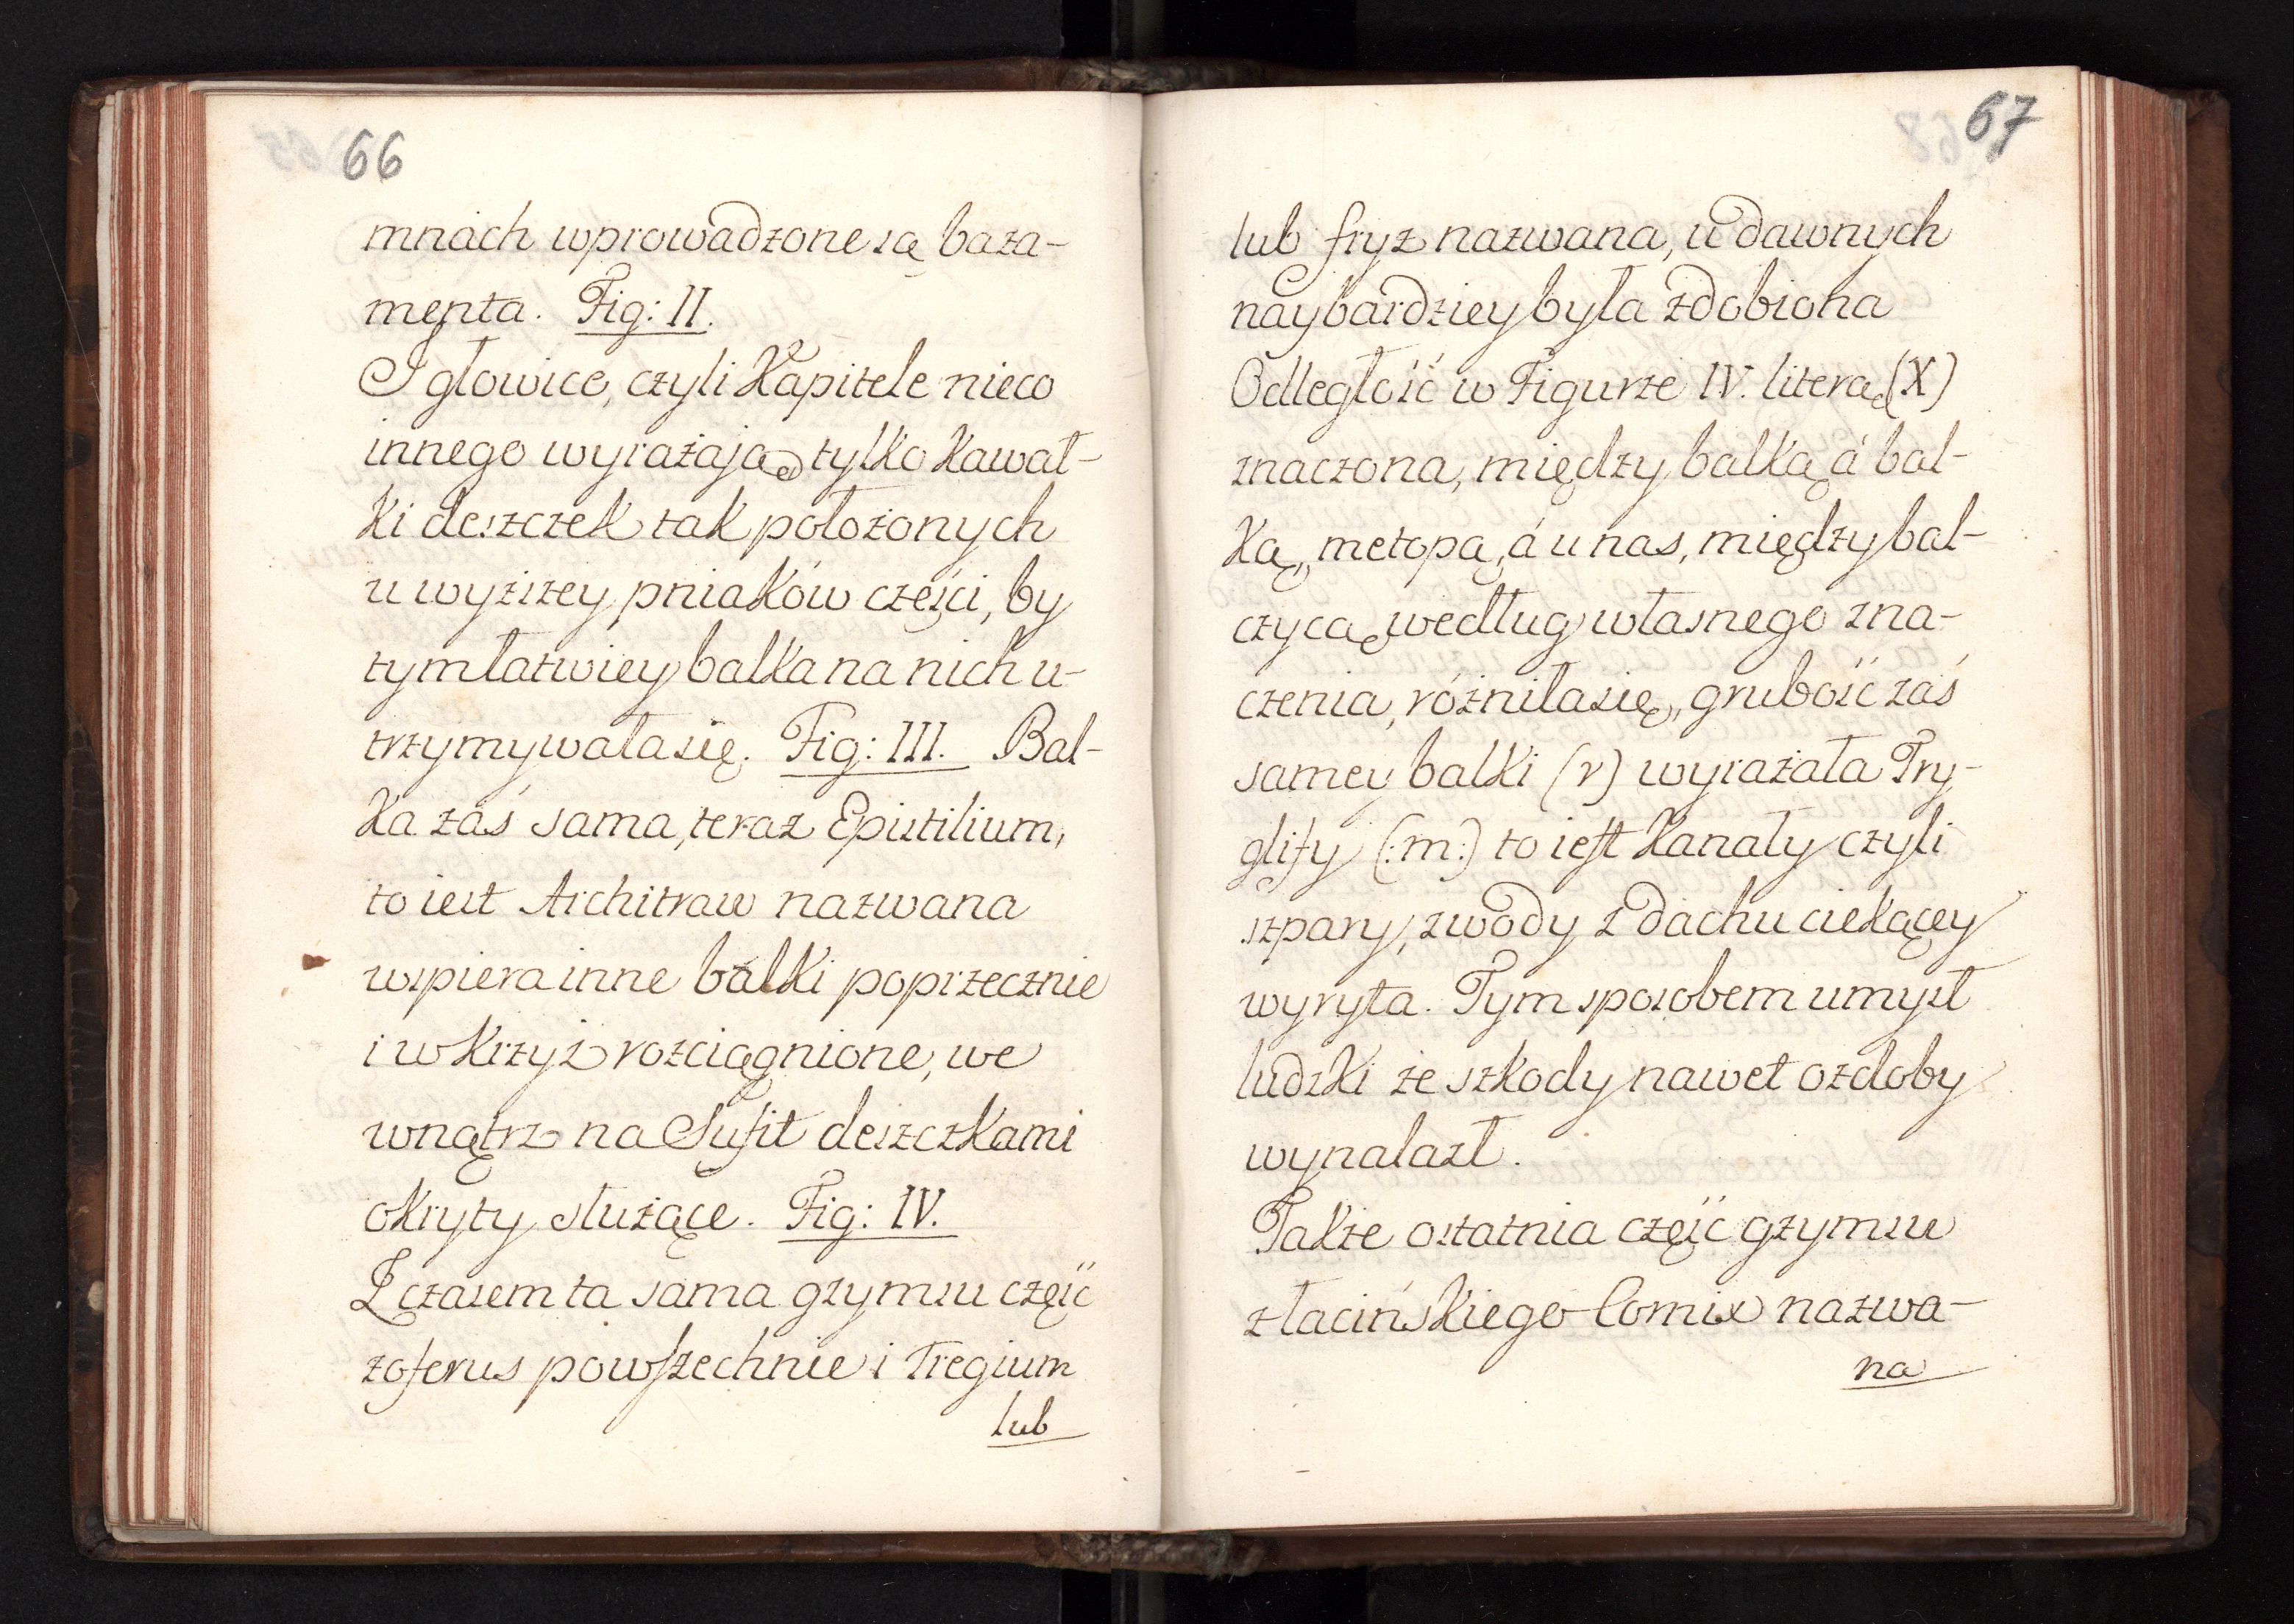 66
mnach wprowadzone są baza-
menta. Fig: II.
I głowice, czyli Kapitele nieco
innego wyrażają tylko kawał-
ki deszczek tak położonych
u wyższey pniaków części, by
tym łatwiey balka na nich u-
trzymywała się. Fig: III. Bal-
ka zaś sama, teraz Epistilium,
to iest Architraw nazwana
wspiera inne balki poprzecznie
i w krzyż rozciągnione, we
wnątrz na Sufit deszczkami
okryty służące. Fig: IV.
Z czasem ta sama gzymsu część
zoferus powszechnie i Tregium
lub
67
lub fryz nazwana, u dawnych
naybardziey była zdobiona
Odległość w Figurze IV. literą (X)
znaczona, między balką á bal-
ką, metopą, á u nas, między bal-
czycą według własnego zna-
czenia, różniła się, grubość zaś
samey balki (r) wyrażała Try-
glify (:m:) to iest kanały czyli
szpary, z wody z dachu ciekącey
wyryta. Tym sposobem umysł
ludzki ze szkody nawet ozdoby
wynalazł.
Także ostatnia część gzymsu
z łacińskiego Cornix nazwa-
na